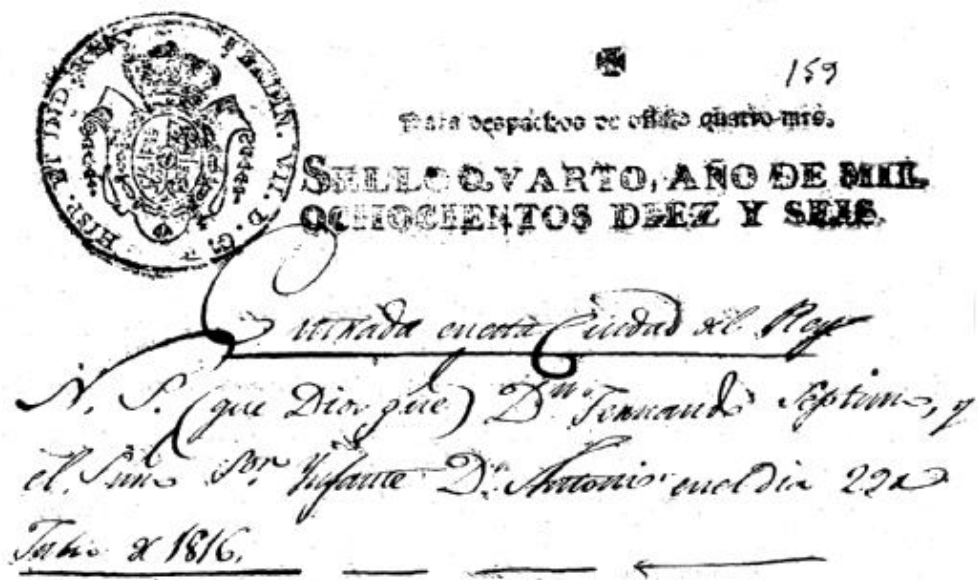 HISP. ET IND. REX
FERDIN. VII. D. G.
159
Para despachos de oficio quatro mrs.
SELLO QVARTO, AÑO DE MIL
OCHOCIENTOS DIEZ Y SEIS.
Entrada en esta Ciudad del Rey
N. S. (que Dios gũe) Dn. Fernando Septimo, y
el Sor. Infante Dn. Antonio en el dia 22 de
1816.